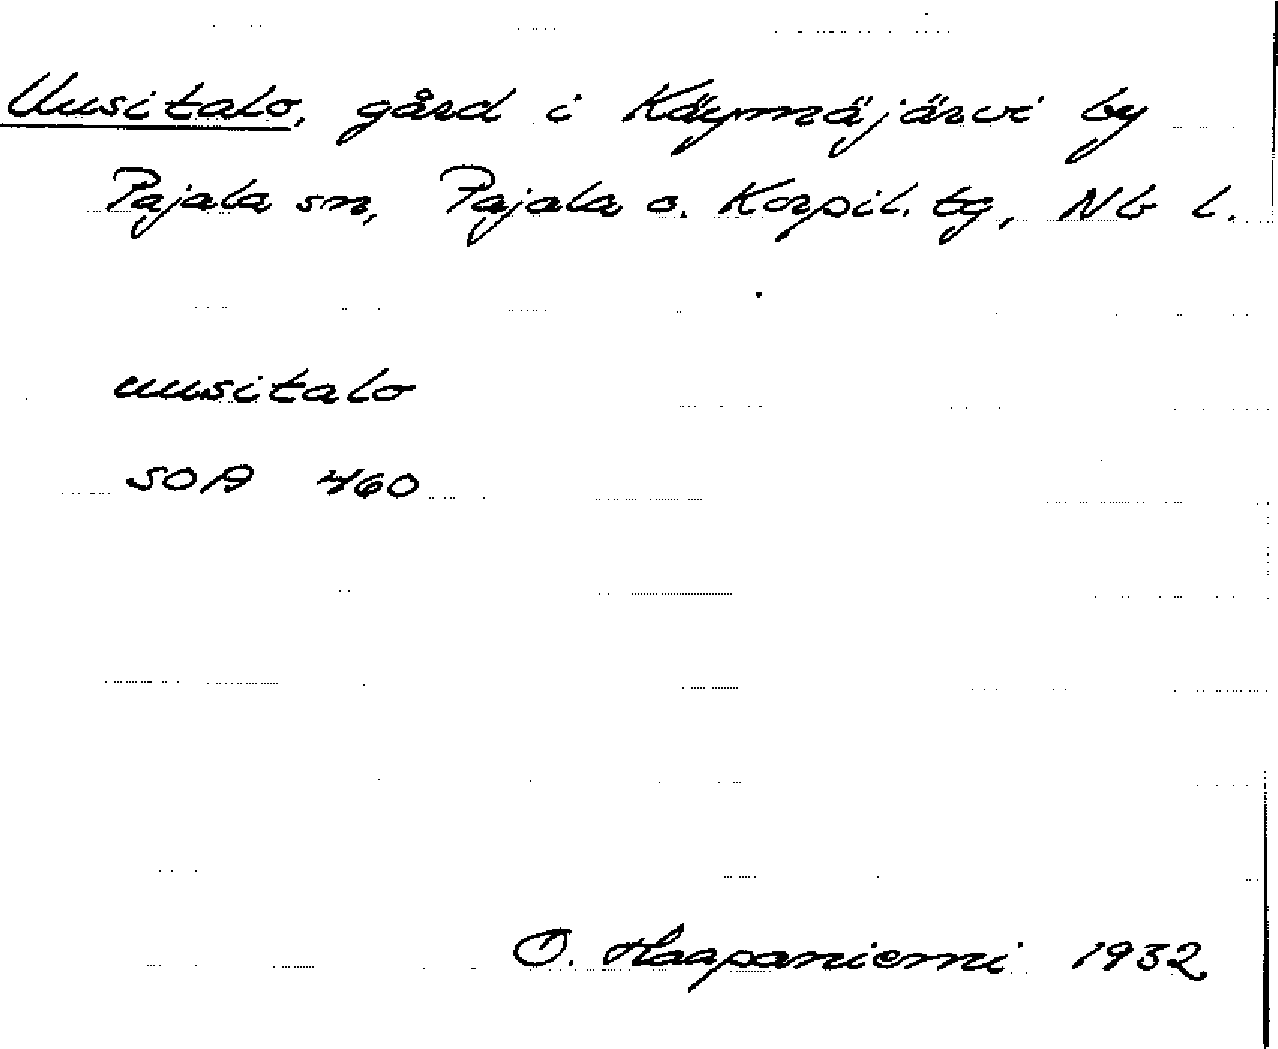 Uusitalo, gård i Käymäjärvi by
Pajala sn, Pajala o. Korpil. tg, Nb l.
uusitalo
SOA 460
O. Haapaniemi 1932